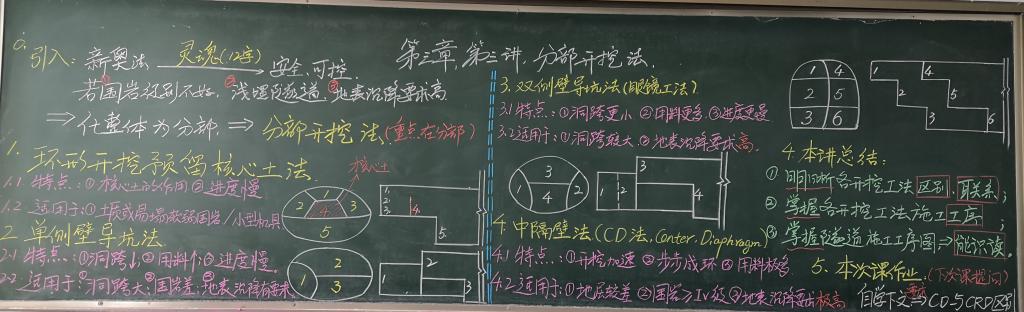 第三章,第二讲,分部开挖法.
0.引入: 新奥法 灵魂(12字) 安全.可控.
①若围岩级别不好, ②浅埋隧道, ③地表沉降要求高
⇒化整体为分部. ⇒ 分部开挖法.(重点在分部)
1. 环形开挖预留核心土法. 核心土
1.1. 特点: ①核心土的作用 ②进度慢
1.2. 适用于: ①土质或易坍软弱围岩/小型机具
1
2 4 3
5
1. 2. 3. 4 5
2. 单侧壁导坑法.
2.1. 特点: ①洞跨小 ②用料 ③进度慢.
2.2. 适用于: ①洞跨大: ②围岩差: ③地表沉降有要求
1 2 3
1 2 3
3. 双侧壁导坑法(眼镜工法)
3.1 特点: ①洞跨更小 ②用料更多 ③进度更慢
3.2 适用于: ①洞跨较大 ②地表沉降要求高.
3
1 4 2
1 2 3 4
4 中隔壁法(CD法. Center. Diaphragm)
4.1 特点: ①开挖加速 ②步步成环 ③用料极多
4.2 适用于: ①地层较差 ②围岩 Ⅳ级 ③地表沉降要求极高
1 4
2 5
3 6
1 4 2 5 3 6
4. 本讲总结:
① 明晰各开挖工法区别. 联系;
② 掌握各开挖工法施工工序;
③ 掌握隧道施工工序图⇒能识读.
5. 本次课作业.(下次课提问)
自学下文⇒CD与CRD区别